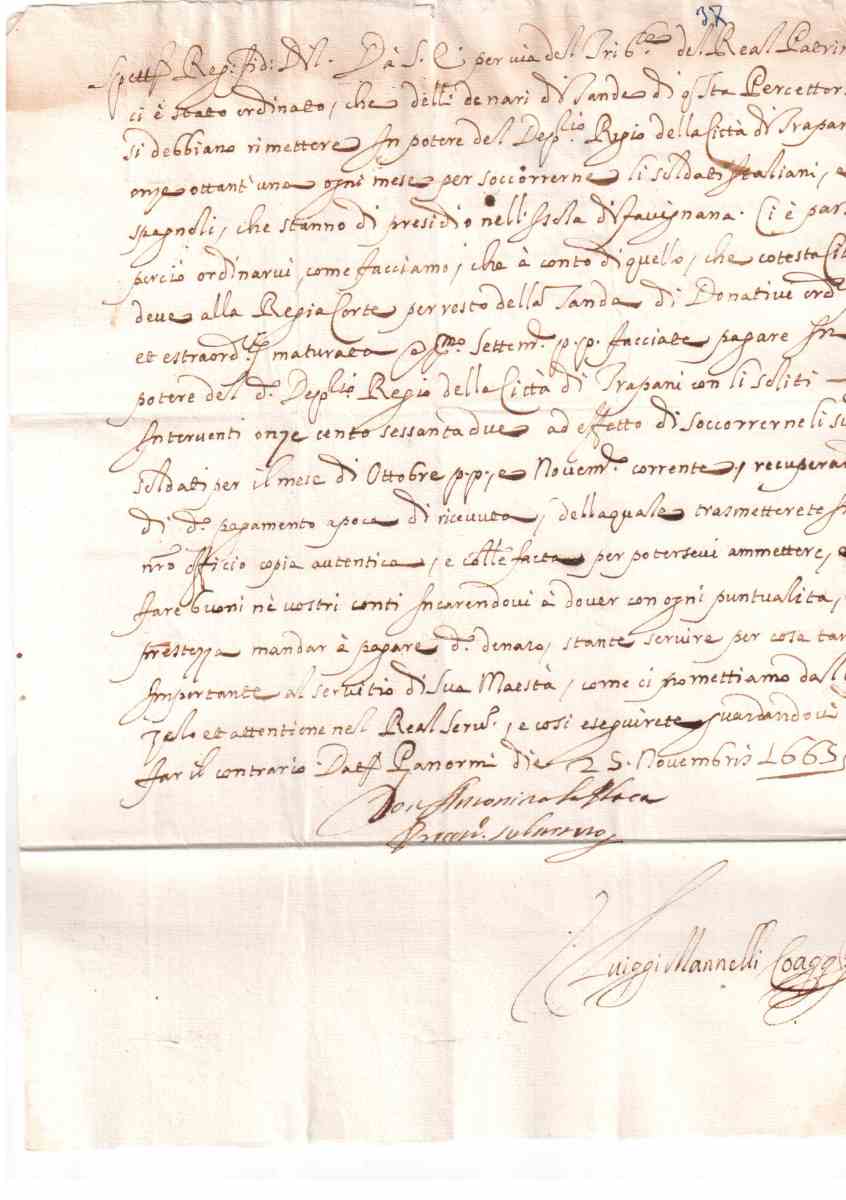 37
Spett. Reg: fid: D.N. Dà S. E. per via del Trib.le del Real Patrim
ci è stato ordinato, che delli denari di Tande di q.sta Percettor
si debbiano rimettere In potere del Dep.rio Regio della Città di Trapan
onze ottant'una ogni mese per soccorrerne li soldati Italiani, e
spagnoli, che stanno di presidio nell'Isola di Favignana. Ci è par
perciò ordinarvi, come facciamo, che à conto di quello, che cotesta Cit
deve alla Regia Corte per resto della Tanda di Donativi ord.
et estraord. maturata Settem. p.p. facciate pagare In
potere del d.o Dep.rio Regio della Città di Trapani con li soliti
Interventi onze cento sessanta due ad effetto di soccorrerne li su
soldati per il mese di Ottobre p.p., e Novem. corrente, recuperan
di d.o pagamento apoca di ricevuta, della quale trasmetterete In
nro officio copia autentica, e coll'e facta per potersevi ammettere, e
fare buoni nè vostri conti Incarendovi à dover con ogni puntualità,
prestezza mandar à pagare d.o denaro, stante servire per cosa tan
Importante al servitio di Sua Maestà, come ci promettiamo dal
zelo et attentione nel Real Serv., e così eseguirete guardandovi
far il contrario. Dat. Panormi die 25. Novembris 1663,
Don Antonino la Placa
Luiggi Mannelli Coagg